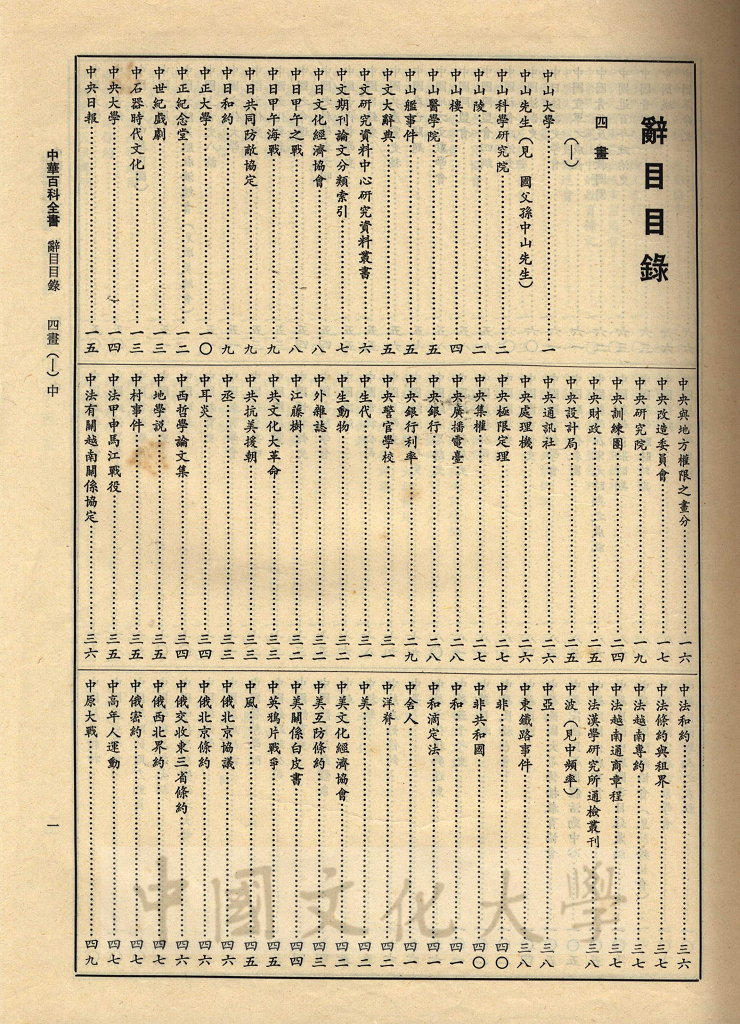 辭目目錄
四畫
(一)
中山大學……一
中山先生(見 國父孫中山先生)
中山科學研究院……二
中山陵……二
中山樓……四
中山醫學院……五
中山艦事件……五
中文大辭典……五
中文研究資料中心研究資料叢書……六
中文期刊論文分類索引……七
中日文化經濟協會……八
中日甲午之戰……八
中日甲午海戰……九
中日共同防敵協定……九
中日和約……九
中正大學……一〇
中正紀念堂……一二
中世紀戲劇……一三
中石器時代文化……一三
中央大學……一四
中央日報……一五
中央與地方權限之畫分……一六
中央改造委員會……一七
中央研究院……一九
中央訓練團……二四
中央財政……二五
中央設計局……二五
中央通訊社……二六
中央處理機……二六
中央極限定理……二七
中央集權……二七
中央廣播電臺……二八
中央銀行……二八
中央銀行利率……二九
中央警官學校……三一
中生代……三一
中生動物……三二
中外雜誌……三二
中江藤樹……三二
中共文化大革命……三三
中共抗美援朝……三三
中丞……三三
中耳炎……三四
中西哲學論文集……三四
中地學說……三五
中村事件……三五
中法甲申馬江戰役……三五
中法有關越南關係協定……三六
中法和約……三六
中法條約與租界……三七
中法越南專約……三七
中法越南通商章程……三七
中法漢學研究所通檢叢刊……三八
中波(見中頻率)
中亞……三八
中東鐵路事件……三八
中非……四〇
中非共和國……四〇
中和……四一
中和滴定法……四一
中舍人……四一
中洋脊……四二
中美……四二
中美文化經濟協會……四二
中美互防條約……四三
中美關係白皮書……四四
中英鴉片戰爭……四五
中風……四五
中俄北京協議……四六
中俄北京條約……四六
中俄交收東三省條約……四六
中俄西北界約……四七
中俄密約……四七
中高年人運動……四七
中原大戰……四九
中華百科全書 辭目目錄 四畫(一)中
一
中國文化大學